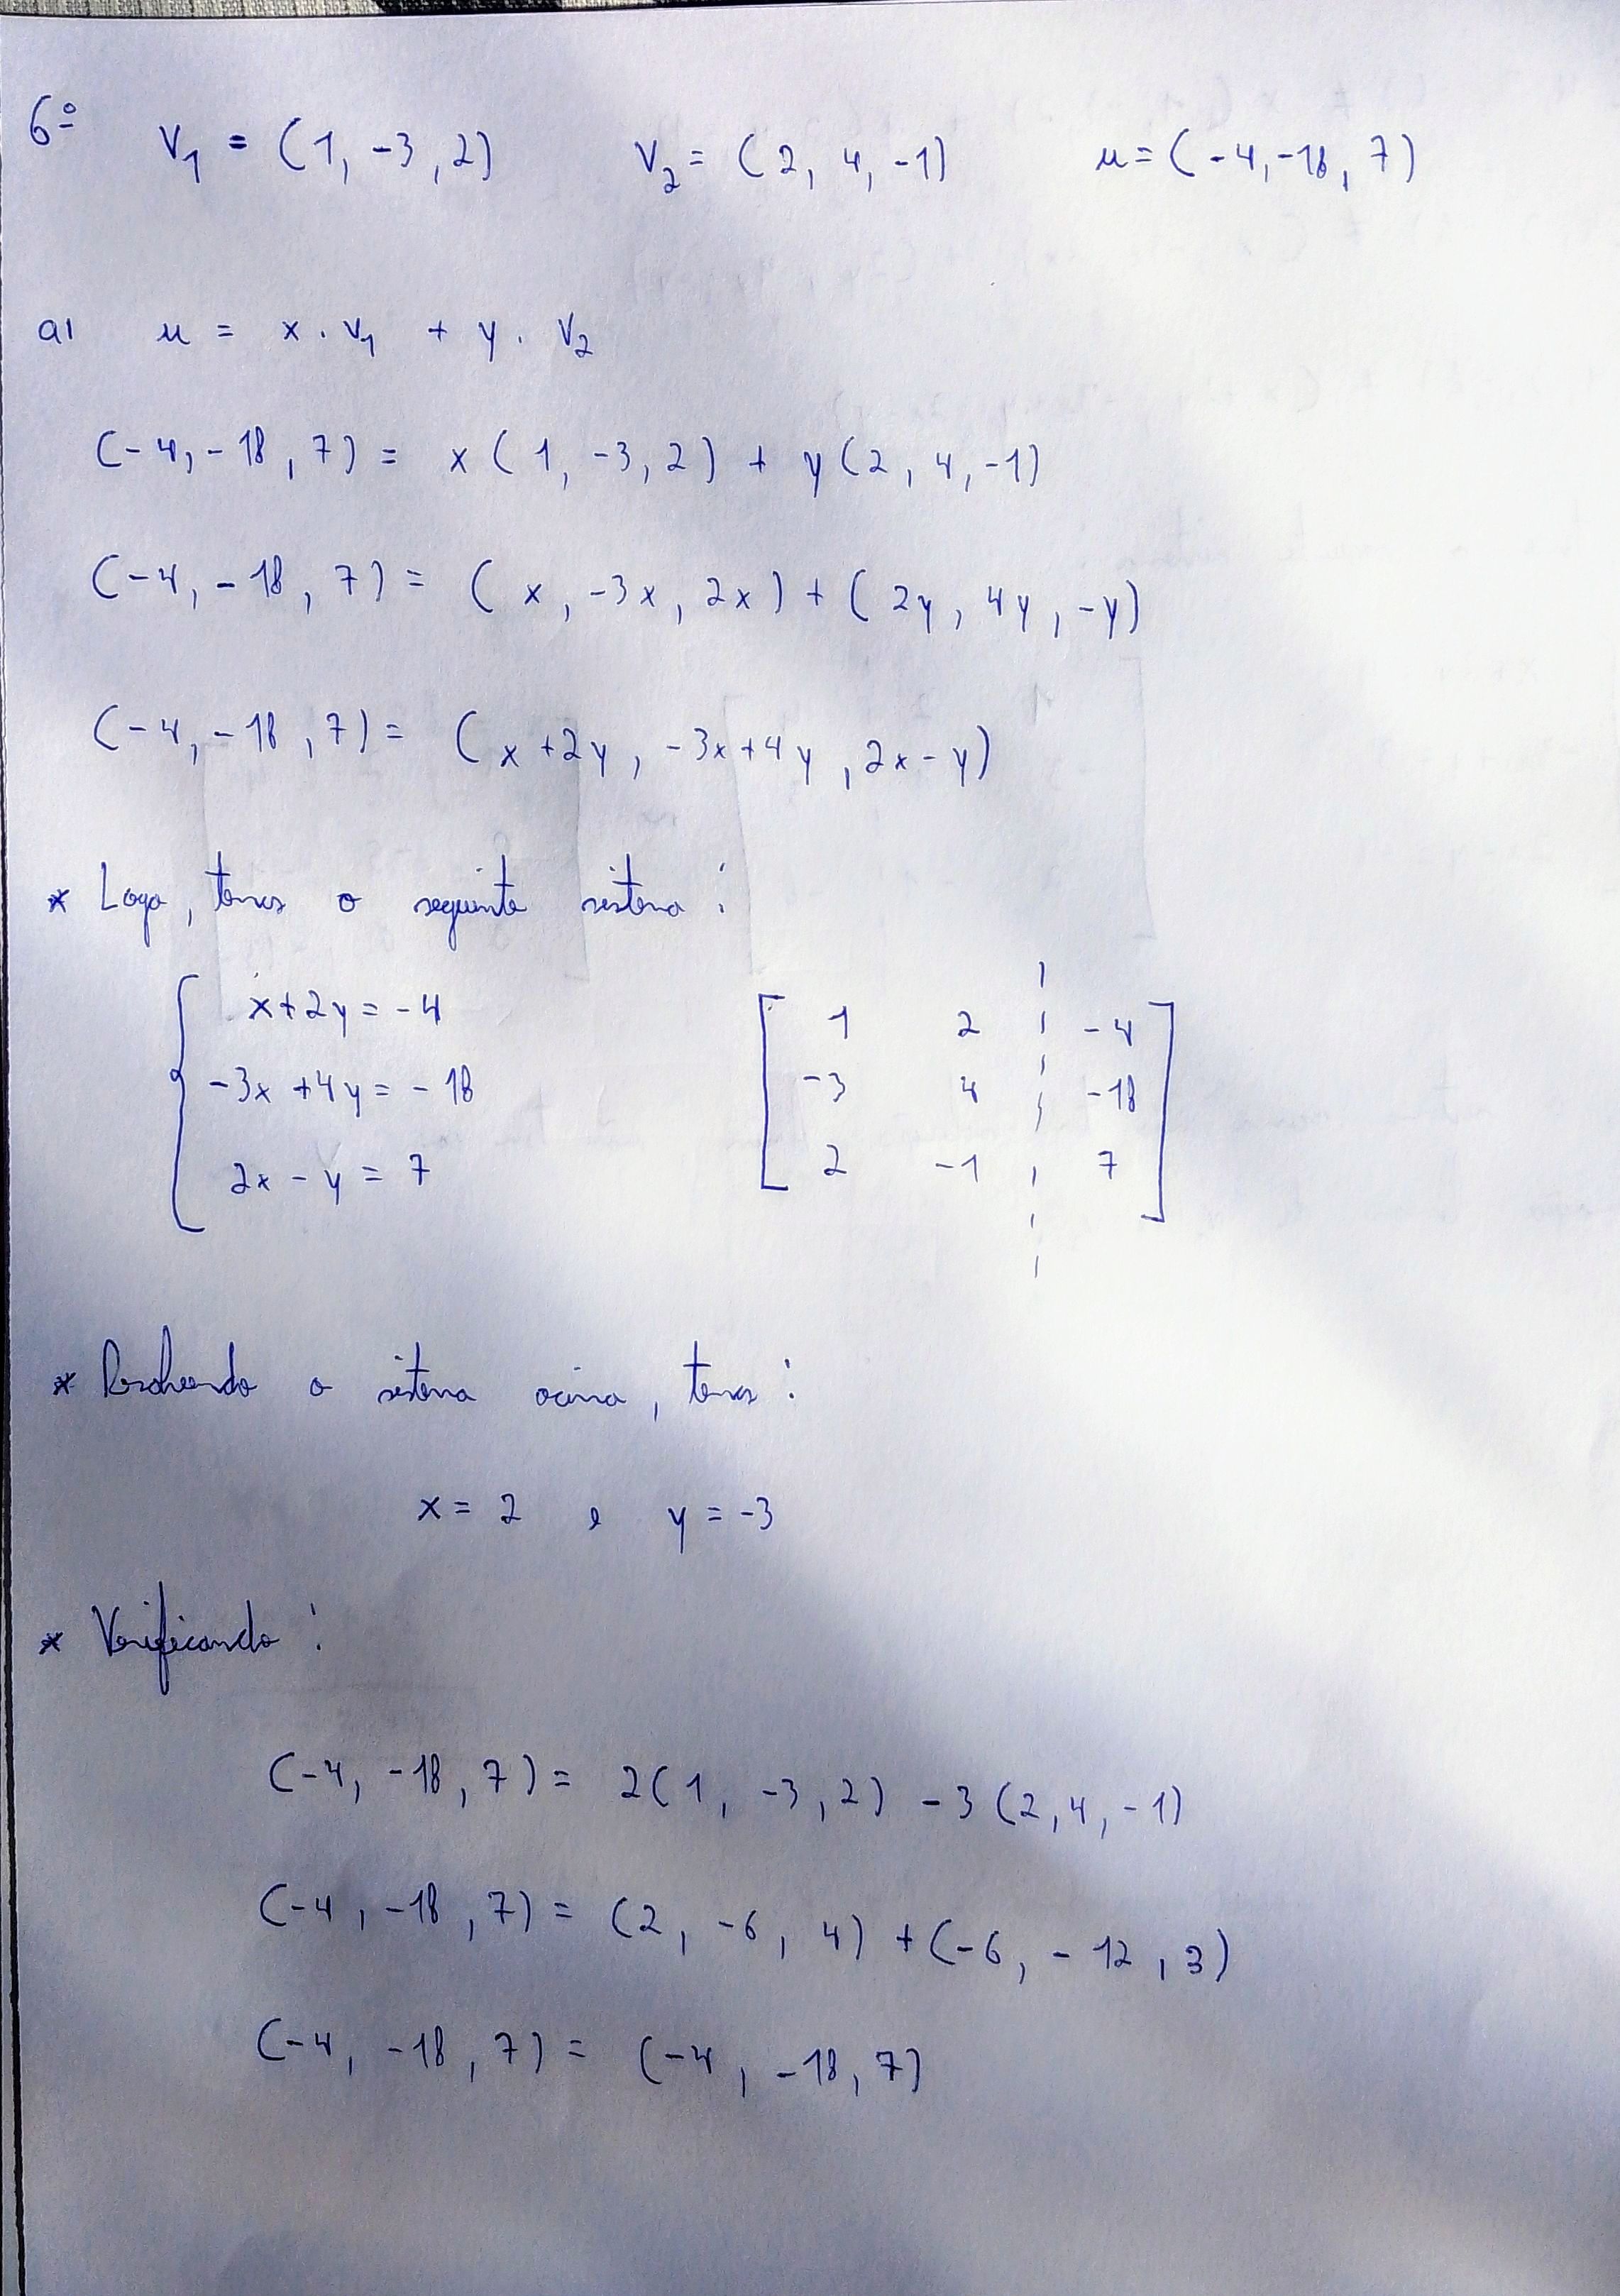 6º V₁ = (1, -3, 2) V₂ = (2, 4, -1) u = (-4, -18, 7)
a) u = x . V₁ + y . V₂
(-4, -18, 7) = x (1, -3, 2) + y (2, 4, -1)
(-4, -18, 7) = (x, -3x, 2x) + (2y, 4y, -y)
(-4, -18, 7) = (x + 2y, -3x + 4y, 2x - y)
* Logo, temos o seguinte sistema:
x + 2y = -4
-3x + 4y = -18
2x - y = 7
1 2 | -4
-3 4 | -18
2 -1 | 7
* Resolvendo o sistema acima, temos:
x = 2 e y = -3
* Verificando:
(-4, -18, 7) = 2(1, -3, 2) - 3(2, 4, -1)
(-4, -18, 7) = (2, -6, 4) + (-6, -12, 3)
(-4, -18, 7) = (-4, -18, 7)